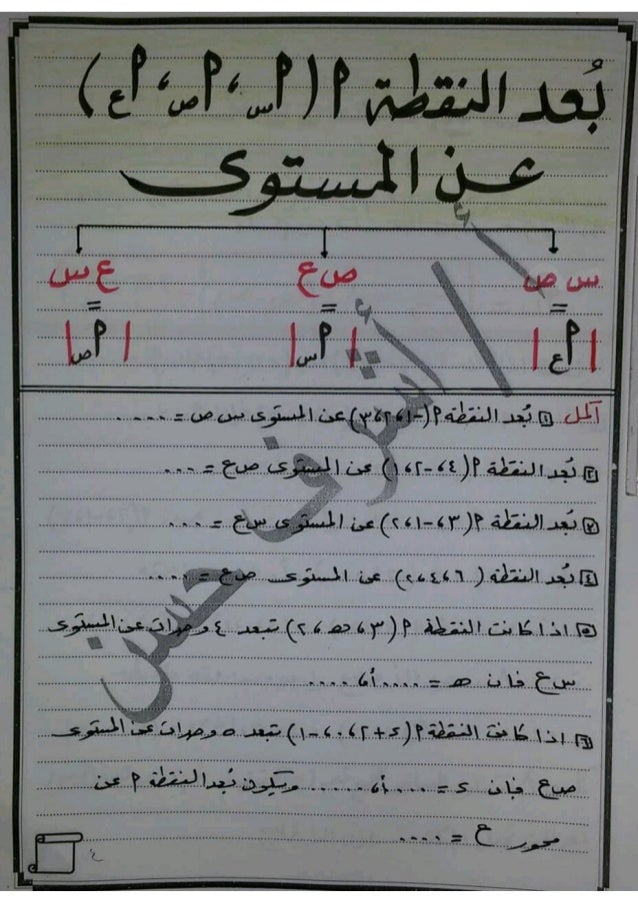 بُعد النقطة ٢ (٢س ، ٢ص ، ٢ع)
عن المستوى
س ص
ص ع
ع س
=
=
=
|٢ع|
|٢س|
|٢ص|
أ / أشرف حسن
أكمل ١ بُعد النقطة ٢ (-١، ٢، ٣) عن المستوى س ص = ....
٢ بُعد النقطة ٢ (٤، -٢، ١) عن المستوى ص ع = ...
٣ بُعد النقطة ٢ (٣، -١، ٢) عن المستوى س ع = ...
٤ بُعد النقطة (٦، ٤، ٢) عن المستوى ص ع = ....
٥ اذا كانت النقطة ٢ (٣، ه، ٢) تبعد ٤ وحدات عن المستوى
س ع فان ه = .... أ، ....
٦ اذا كانت النقطة ٢ (ك+٢، ٠، -١) تبعد ٥ وحدات عن المستوى
ص ع فإن ك = .... أ، ..... ويكون بُعد النقطة ٢ عن
محور ع = ....
٤